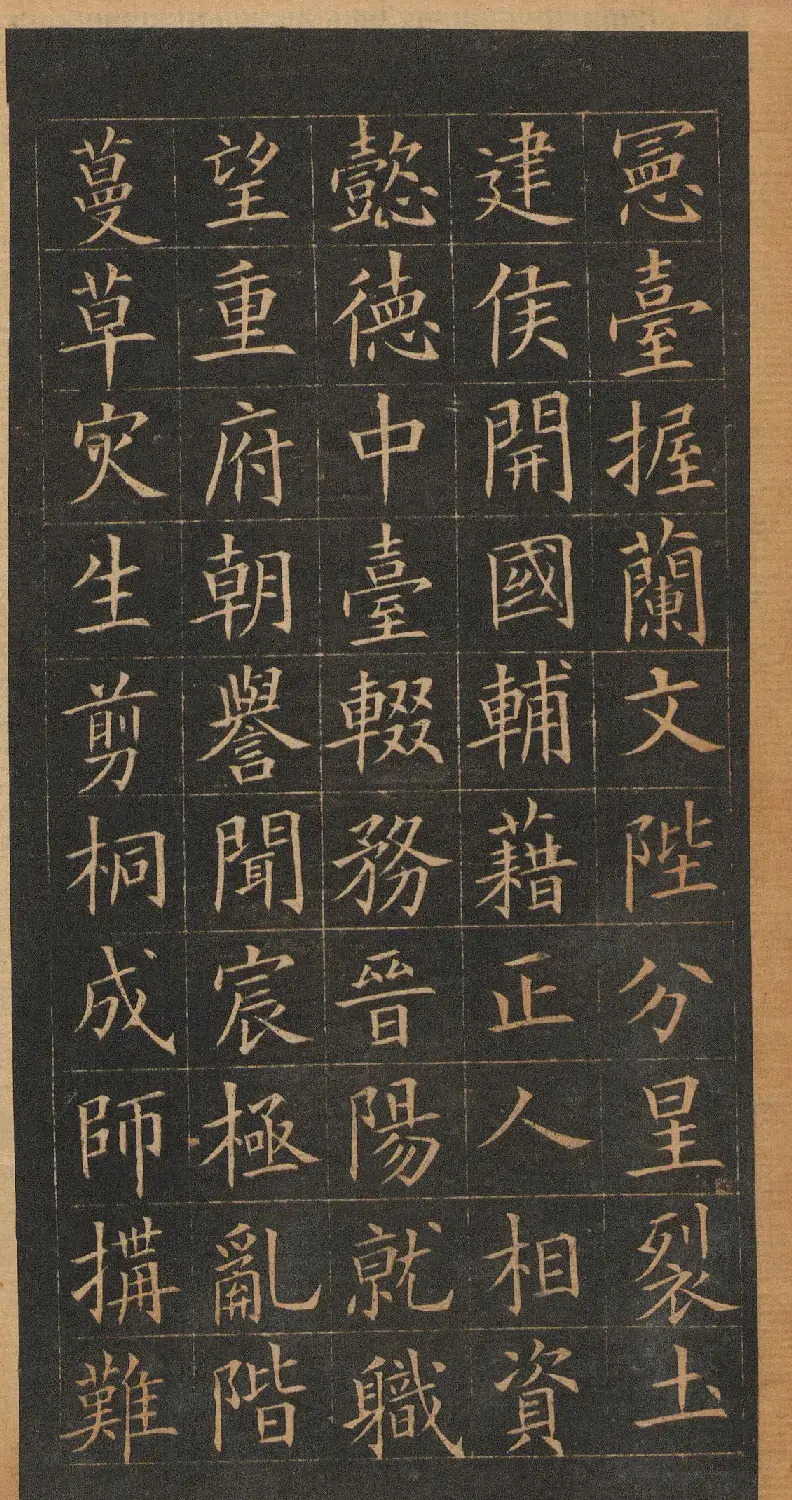 憲臺握蘭文陛分星裂土
建侯開國輔藉正人相資
懿德中臺輟務晉陽就職
望重府朝譽聞宸極亂階
蔓草灾生剪桐成師搆難